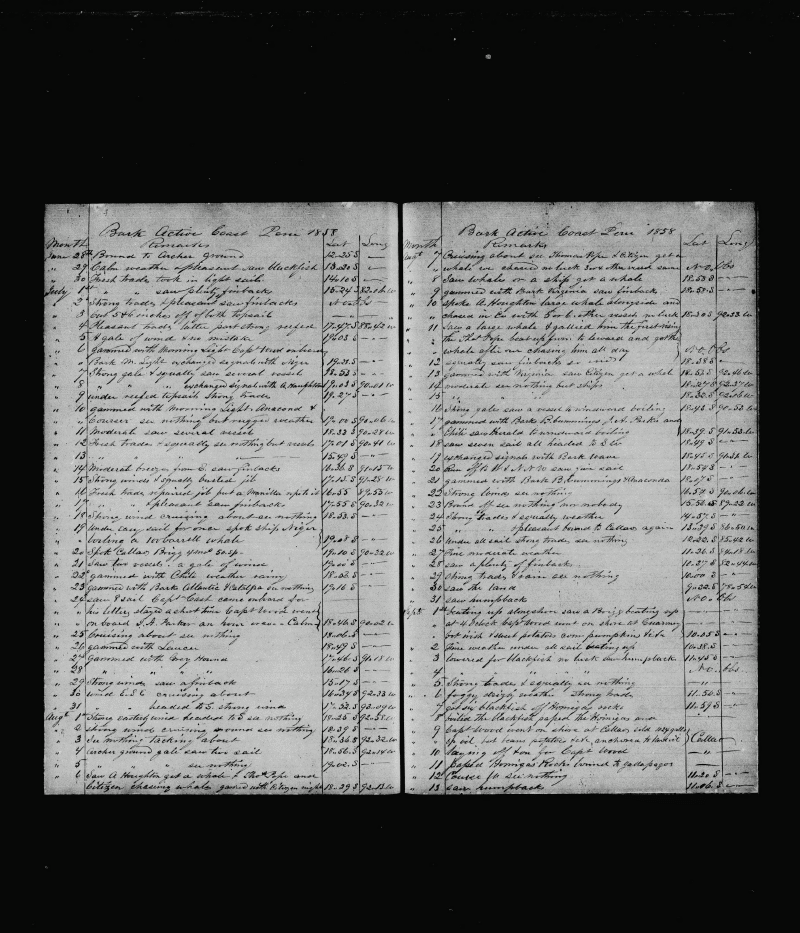 Bark Active Coast Peru 1858
Month Remarks Lat Long
June 28th Bound to Archer ground 12..25 S
" 29 Calm weather & pleasant saw blackfish 13..20 S
" 30 Fresh trades took in light sails 14..10 S
July 1st " " saw finbacks 15..24 S
" 2 Strong trades & pleasant saw finbacks No Obs
" 3 cut 5 & 6 inches off of both topsail
" 4 Pleasant trades latter part strong reefed 17..47 S 88..42 W
" 5 A gale of wind & no mistake 19..03 S
" 6 gammed with Morning Light Capt
" Bark M. Light exchanged signals with Niger
" 7 Strong gale & squally saw several vessels 18..53 S
" 8 " " " exchanged signal with A. Houghton 19..03 S 90..01 W
" 9 under reefed topsail strong trades 19..27 S
" 10 gammed with Morning Light Anaconda &
" Courser see nothing but rugged weather 17..00 S
" 11 Moderate saw several vessels 18..33 S 90..28 W
" 12 Fresh trades & squally see nothing but vessels 17..01 S 90..41 W
" 13 " " " 15..49 S
" 14 Moderate breezes from E. saw finbacks 16..26 S 91..15 W
" 15 Strong winds & squally busted jib 17..15 S 91..28 W
" 16 Fresh trades repaired jib put a Manilla rope to it 16..55 S 89..53 W
" 17 " " & pleasant saw finbacks 17..55 S 90..32 W
" 18 Strong wind cruising about see nothing 18..53 S
" 19 under easy sail for once spok ship Niger
" boiling a 10 barrell whale 19..08 S
" 20 Spok Callao Brigg 4 mos 50 sp. 19..10 S 90..22 W
" 21 Saw two vessels, a gale of wind 19..00 S
" 22 gammed with Chili weather rainy 18..56 S
" 23 gammed with Bark Atlantic & Catalpa see nothing 19..16 S
" 24 saw 8 sail Capt Cash came onboard for
" his letters stayed a short time Capt Wood went
" on board S.A. Parker an hour even - Calm 18..46 S 90..02 W
" 25 Cruising about see nothing 18..06 S
" 26 gammed with Lancer 18..49 S
" 27 gammed with Grey Hound 17..46 S 91..18 W
" 28 " " " 16..26 S
" 29 Strong wind saw a finback 15..17 S
" 30 wind E.S.E cruising about 16..34 S 92..33 W
" 31 " " headed to S. strong wind 17..32 S 93..09 W
Augt 1st Strong easterly wind headed to S see nothing 18..25 S 92..58 W
" 2 strong wind cruising around see nothing 18..39 S
" 3 see nothing tacking about 18..36 S 92..32 W
" 4 archer ground gale saw two sail 18..56 S 92..14 W
" 5 " " " see nothing 19..02 S
" 6 Saw A Houghton get a whale & Thos Pope and
Citizen chasing whales gamed with Citizen night 18..29 S 92..13 W
Bark Active Coast Peru 1858
Month Remarks Lat Long
Augt 7 Cruising about see Thomas Pope & Citizen get a
" whale we chased no luck No Obs
" 8 Saw whales or a ship got a whale 18..53 S
" 9 gammed with Bark Virginia saw finback 18..58 S
" 10 spoke A. Houghton large whale alongside and
" chased in Co with 3 or 4 other vessels no luck 18..30 S 92..33 W
" 11 Saw a large whale & gallied him the first rising
" the Thos Pope beat up from to leward and got the
" whale after our chasing him all day No Obs
" 12 squally saw finbacks 18..28 S
" 13 gammed with Virginia saw Citizen get a whale 18..53 S 92..46 W
" 14 moderate see nothing but ships 18..27 S 92..37 W
" 15 " " " 18..32 S
" 16 strong gales saw a vessel to windward boiling 18..46 S 90..53 W
" 17 gammed with Barks R. Cummings J. A. Parker and
" Chili saw Herald to windward boiling 18..39 S 91..33 W
" 18 saw seven sail all headed to S W 18..49 S
" 19 exchanged signals with Bark Wave 18..45 S
" 20 Run off to W & N.N.W. saw five sail 18..54 S
" 21 gammed with Bark B. Cummings & Anaconda
" 22 Strong winds see nothing 16..50 S
" 23 Bound off see nothing nor nobody 15..50 S 89..22 W
" 24 Strong trades & squally weather 14..37 S
" 25 " " & pleasant bound to Callao again 13..39 S 86..50 W
" 26 Under all sail strong trades see nothing 12..22 S 85..42 W
" 27 Fine moderate weather 11..26 S
" 28 saw a plenty of finback 11..27 S 82..44 W
" 29 strong trades & rain see nothing 10..00 S
" 30 saw the land 9..22 S 78..54 W
" 31 saw humpback No Obs
Sept 1st beating up along shore saw a Brigg beating up
" at 4 oclock Capt Wood went on shore at Guarmey
got Irish & sweet potatoes corn pumpkins &etc 10..05 S
" 2 Fine weather under all sail beating up 10..38 S
" 3 lowered for blackfish no luck saw humpback 11..45 S
" 4 " " " No Obs
" 5 Strong trades & squally see nothing
" 6 foggy drizzly weather strong trades 11..50 S
" 7 got six blackfish off Hormigas rocks 11..59 S
" 8 boiled the blackfish passed the Hormigas and
" 9 Capt Wood went on shore at Callao sold galls
of oil got beans potatoes &etc Callao
" 10 Laying off & on for Capt Wood
" 11 Passed Hormigas Rocks bound to gallapagos
" 12 Course W see nothing 11..20 S
" 13 saw humpbacks 11..06 S